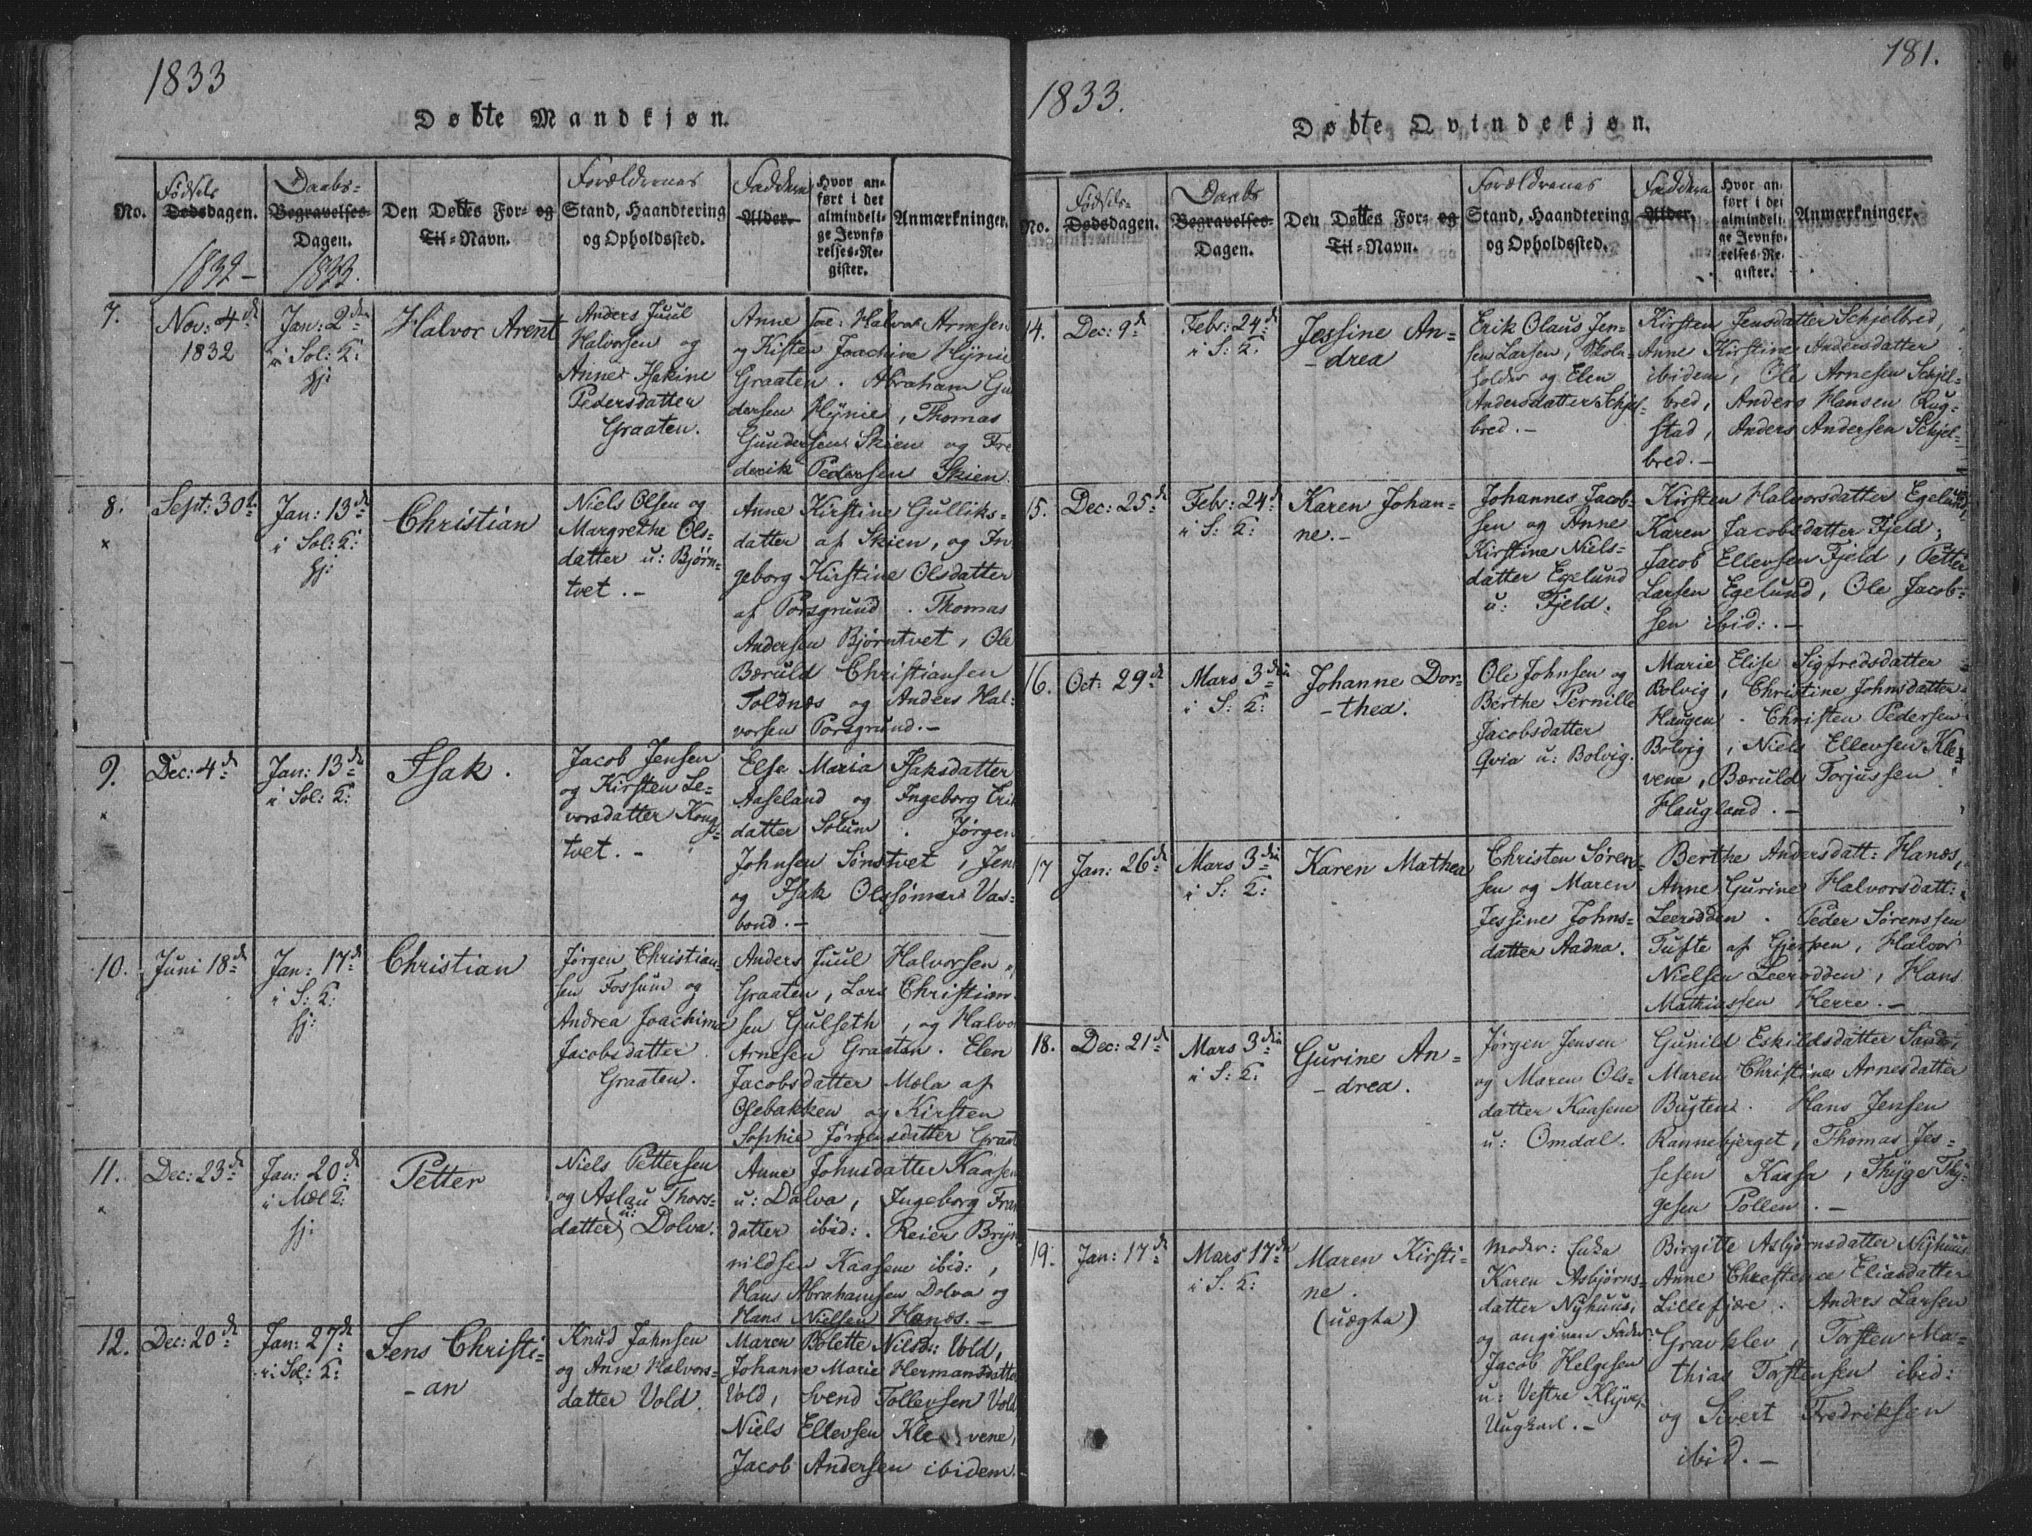 1833
Døbte Mandkjøn.
No.
Fødsels
Dødsdagen.
1832 -
Daabs-
Begravelses-
Dagen.
1833.
Den Døbtes For- og
Til-Navn.
Forældrenes
Stand, Haandtering
og Opholdssted.
Faddere
Alder.
Hvor an-
ført i det
almindeli-
ge Jevnfø-
relses-Re-
gister.
Anmærkninger.
7.
Nov: 4de
1832
Jan: 2den
i Sol: K:
hj:
Halvor Arent
Anders Juul
Halvorsen og
Anne Isakine
Pedersdatter
Graaten.
Anne Toe: Halvor Arnesen
og Kisten Joachine Hynie
Graaten. Abraham Gu
dersen Hynie, Thomas
Gundersen Skien og Fre
derik Pedersen Skien.
8.
Sept: 30te
Jan: 13de
i Sol: K:
hj:
Christian
Niels Olsen og
Margrethe Ols-
datter u: Bjørn-
tvet. -
Anne Kirstine Gulliks-
datter af Skien, og In
geborg Kirstine Olsdatter
af Porsgrund. Thomas
Andersen Bjørntvet, Ole
Bæruld Christiansen
Toldnæs og Anders Hal-
vorsen Porsgrund. -
9.
Dec: 4de
Jan: 13de
i Sol: K:
Isak.
Jacob Jensen
og Kirsten Le-
vorsdatter Kong-
tvet. -
Else Maria Isaksdatter
Aaseland og Ingeborg Erik
datter Solum. Jørgen
Johnsen Sønstvet, Jens
og Isak Olssønner Vas-
bond. -
10.
Juni 18de
Jan: 17de
i S: K:
hj:
Christian
Jørgen Christian-
sen Fossum og
Andrea Joachime
Jacobsdatter
Graaten.
Anders Juul Halvorsen,
Graaten, Lars Christian
sen Gulseth, og Halvor
Arnesen Graaten. Elen
Jacobsdatter Mæla af
Osebakken og Kirsten
Sophie Jørgensdatter Graat
11.
Dec: 23de
Jan: 20de
i Mæl K:
hj:
Petter
Niels Pettersen
og Aslau Thors-
datter u: Dolva.
Anne Johnsdatter Kaasen
u: Dolva, Ingeborg Fran
datter ibid:. Reier Bryn
nildsen Kaasene ibid:,
Hans Abrahamsen Dolva og
Hans Nielsen Hanæs. -
12.
Dec: 20de
Jan: 27de
i Sol: K:
Jens Christi-
-an
Knud Jahnsen
og Anne Halvors-
datter Vold.
Maren Bolette Nilsd: Vold,
Johanne Marie Hermansdatter
Vold, Svend Tollevsen Vold
Niels Ellevsen Klevene,
Jacob Andersen ibidem.
181.
1833.
Døbte Qvindekjøn.
No.
Fødsels-
Dødsdagen.
Daabs
Begravelses-
Dagen.
Den Døbtes For- og
Til-Navn.
Forældrenes
Stand, Haandtering
og Opholdssted.
Faddere
Alder.
Hvor an-
ført i det
almindeli-
ge Jevnfø-
relses-Re-
gister.
Anmærkninger.
14.
Dec: 9de
Febr: 24de
i S: K:
Jessine An-
-drea
Erik Olaus Jen-
sen Larsen, Skole-
holder og Elen
Andersdatter Schjel-
bred. -
Kirsten Jensdatter Schjelbred,
Anne Kirstine Andersdatter
ibidem, Ole Arnesen Schjel-
bred, Anders Hansen Rug-
stad, Anders Andersen Schjel-
bred. -
15.
Dec: 25de
Febr: 24de
i S: K:
Karen Johan-
ne. -
Johannes Jacob-
sen og Anne
Kirstine Niels-
datter Egelund
u: Fjeld.
Kirsten Halvorsdatter Egelund,
Karen Jacobsdatter Fjeld,
Jacob Ellevsen Fjeld, Petter
Larsen Egelund, Ole Jacob-
sen ibid:. -
16.
Oct: 29de
Mars 3die
i S: K:
Johanne Dor-
-thea.
Ole Johnsen og
Berthe Pernille
Jacobsdatter
Qvia u: Bolvig.
Marie Elise Sigfredsdatter
Bolvig, Christine Johnsdatter
Haugen. Christen Pedersen
Bolvig, Niels Ellevsen Kle-
vene, Bæruld Torjussen
Haugland. -
17
Jan: 26de
Mars 3die
i S: K:
Karen Mathea
Christen Søren-
sen og Maren
Jessine Johns-
datter Aadna.
Berthe Andersdatt: Hanæs,
Anne Gurine Halvorsdatt:
Leerødden. Peder Sørenssen
Tufte af Gjerpen, Halvor
Nielsen Leerødden, Hans
Mathiassen Herre. -
18.
Dec: 21de
Mars 3die
i S: K:
Gurine An-
-drea.
Jørgen Jensen
og Maren Ols-
datter Kaasene
u: Omdal.
Gunild Eskildsdatter Sand,
Maren Christine Arnesdatter
Bugten. Hans Jensen
Rannebjerget, Thomas Jes-
sesen Kaasa, Thyge Thy-
gesen Pollen. -
19.
Jan: 17de
Mars 17de
i S: K:
Maren Kirsti-
ne.
(uægta)
Moder: Enka
Karen Asbjørns-
datter Nyhuus,
og angiven Fader:
Jacob Helgesen
u: Vestre Klyve,
Ungkarl. -
Birgitte Asbjørnsdatter Nyhuus
Anne Christence Eliasdatter
Lillefjære. Anders Larsen
Gravklev, Torsten Ma-
thias Torstensen ibid:
og Sivert Fredriksen
ibid. -